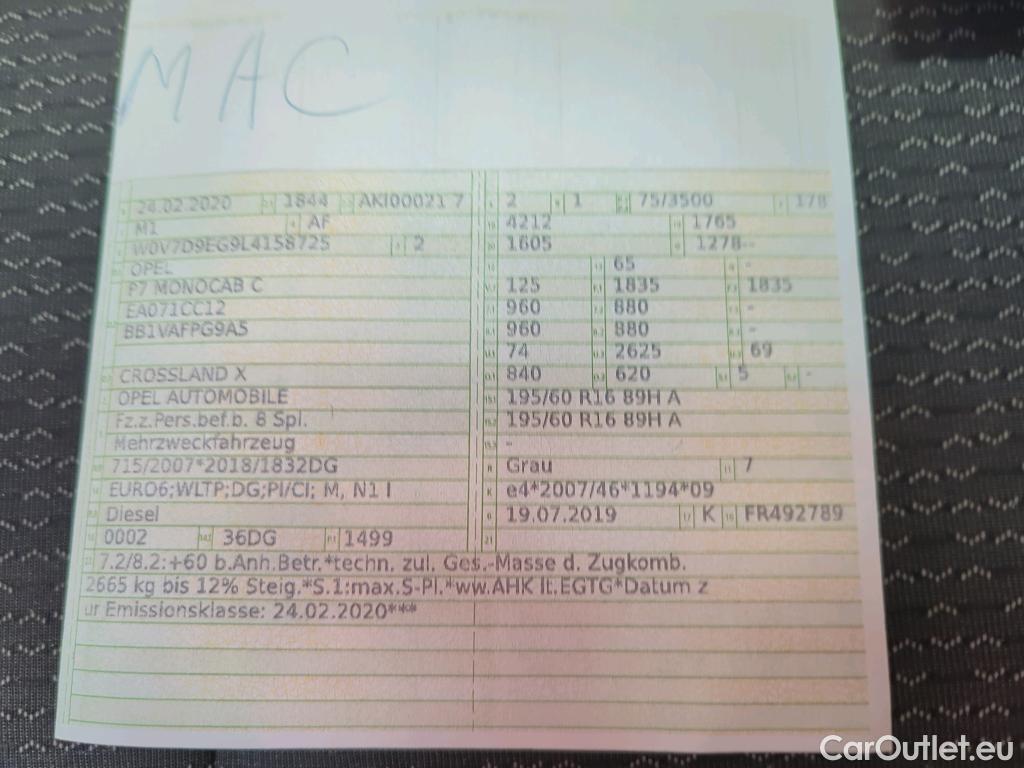 MAC
24.02.2020 1844 AKI00021 7
M1 AF
W0V7D9EG9L4158725 2
OPEL
P7 MONOCAB C
EA071CC12
BB1VAFPG9A5
CROSSLAND X
OPEL AUTOMOBILE
Fz.z.Pers.bef.b. 8 Spl.
Mehrzweckfahrzeug
715/2007*2018/1832DG
EURO6;WLTP;DG;PI/CI; M, N1 I
Diesel
0002 36DG 1499
2 1 75/3500 178
4212 1765
1605 1278--
65 -
125 1835 1835
960 880 -
960 880 -
74 2625 69
840 620 5 -
195/60 R16 89H A
195/60 R16 89H A
-
Grau 7
e4*2007/46*1194*09
19.07.2019 K FR492789
21
7.2/8.2:+60 b.Anh.Betr.*techn. zul. Ges.-Masse d. Zugkomb.
2665 kg bis 12% Steig.*S.1:max.S-Pl.*ww.AHK lt.EGTG*Datum z
ur Emissionsklasse: 24.02.2020***
CarOutlet.eu